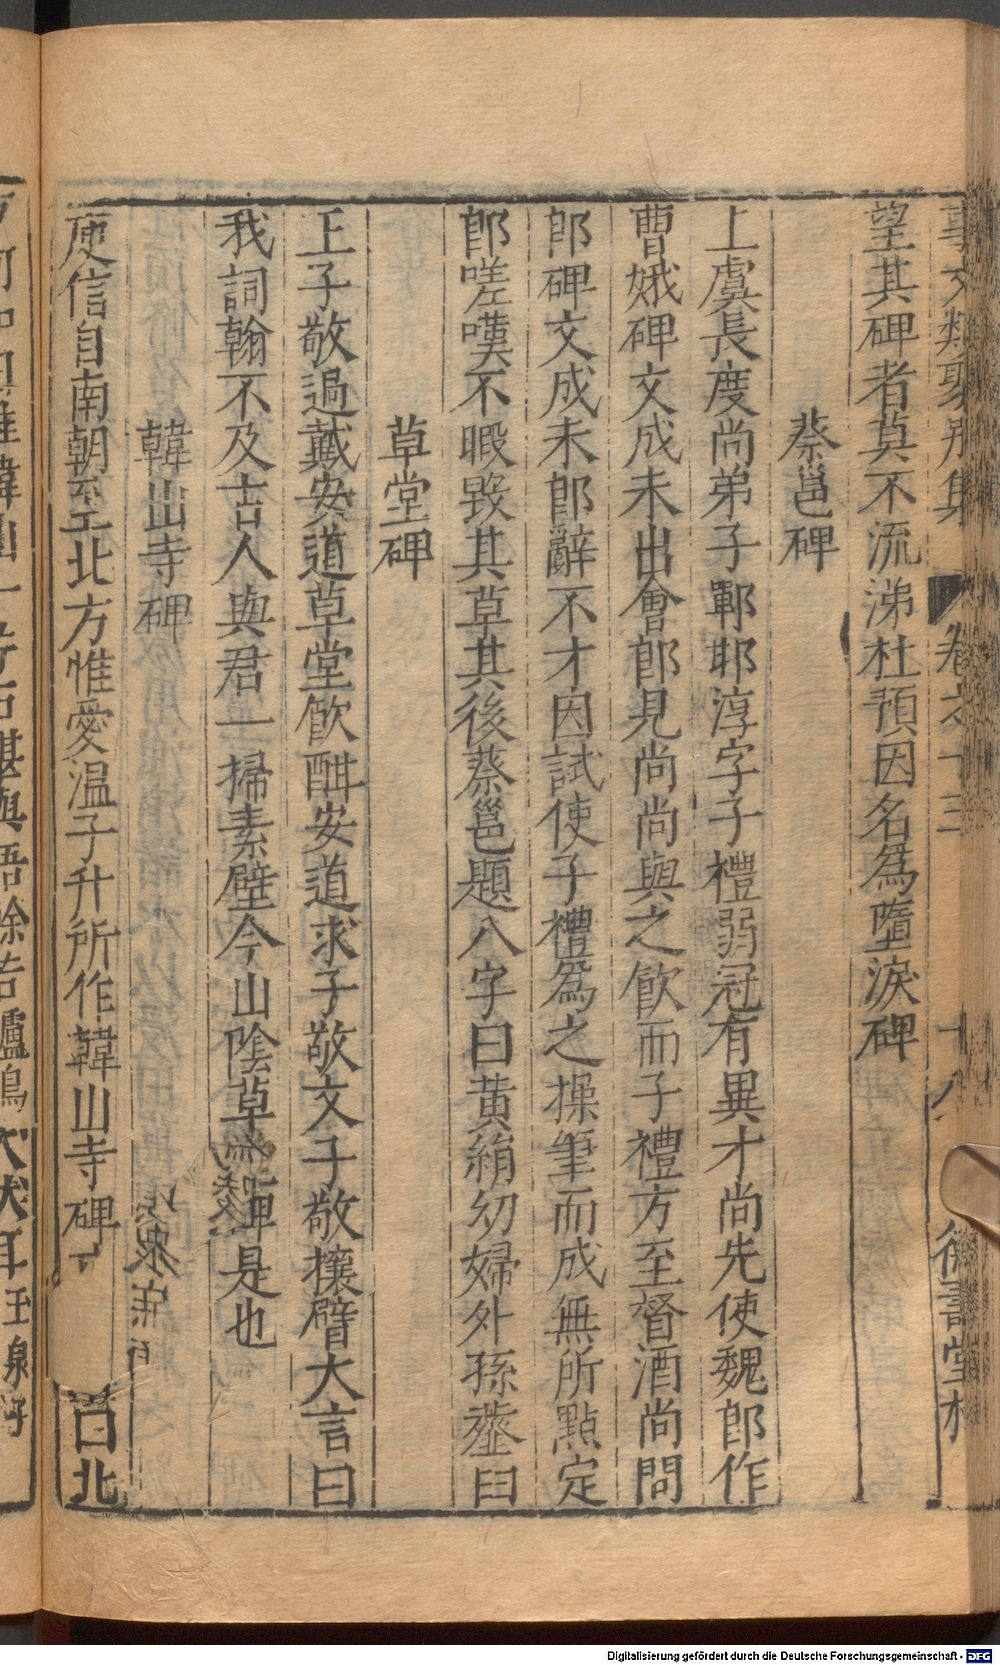 事文類聚別集 卷之十三 十八 德壽堂梓
望其碑者莫不流涕杜預因名為墮淚碑
蔡邕碑
上虞長度尚弟子鄲耶淳字子禮弱冠有異才尚先使魏郎作
曹娥碑文成未出會郎見尚尚與之飲而子禮方至督酒尚問
郎碑文成未郎辭不才因試使子禮為之操筆而成無所點定
郎嗟嘆不暇毀其草其後蔡邕題八字曰黃絹幼婦外孫虀臼
草堂碑
王子敬過戴安道草堂飲酣安道求子敬文子敬攘臂大言曰
我詞翰不及古人與君一掃素壁今山陰草碑是也
韓山寺碑
庾信自南朝至北方惟愛溫子升所作韓山寺碑 曰北